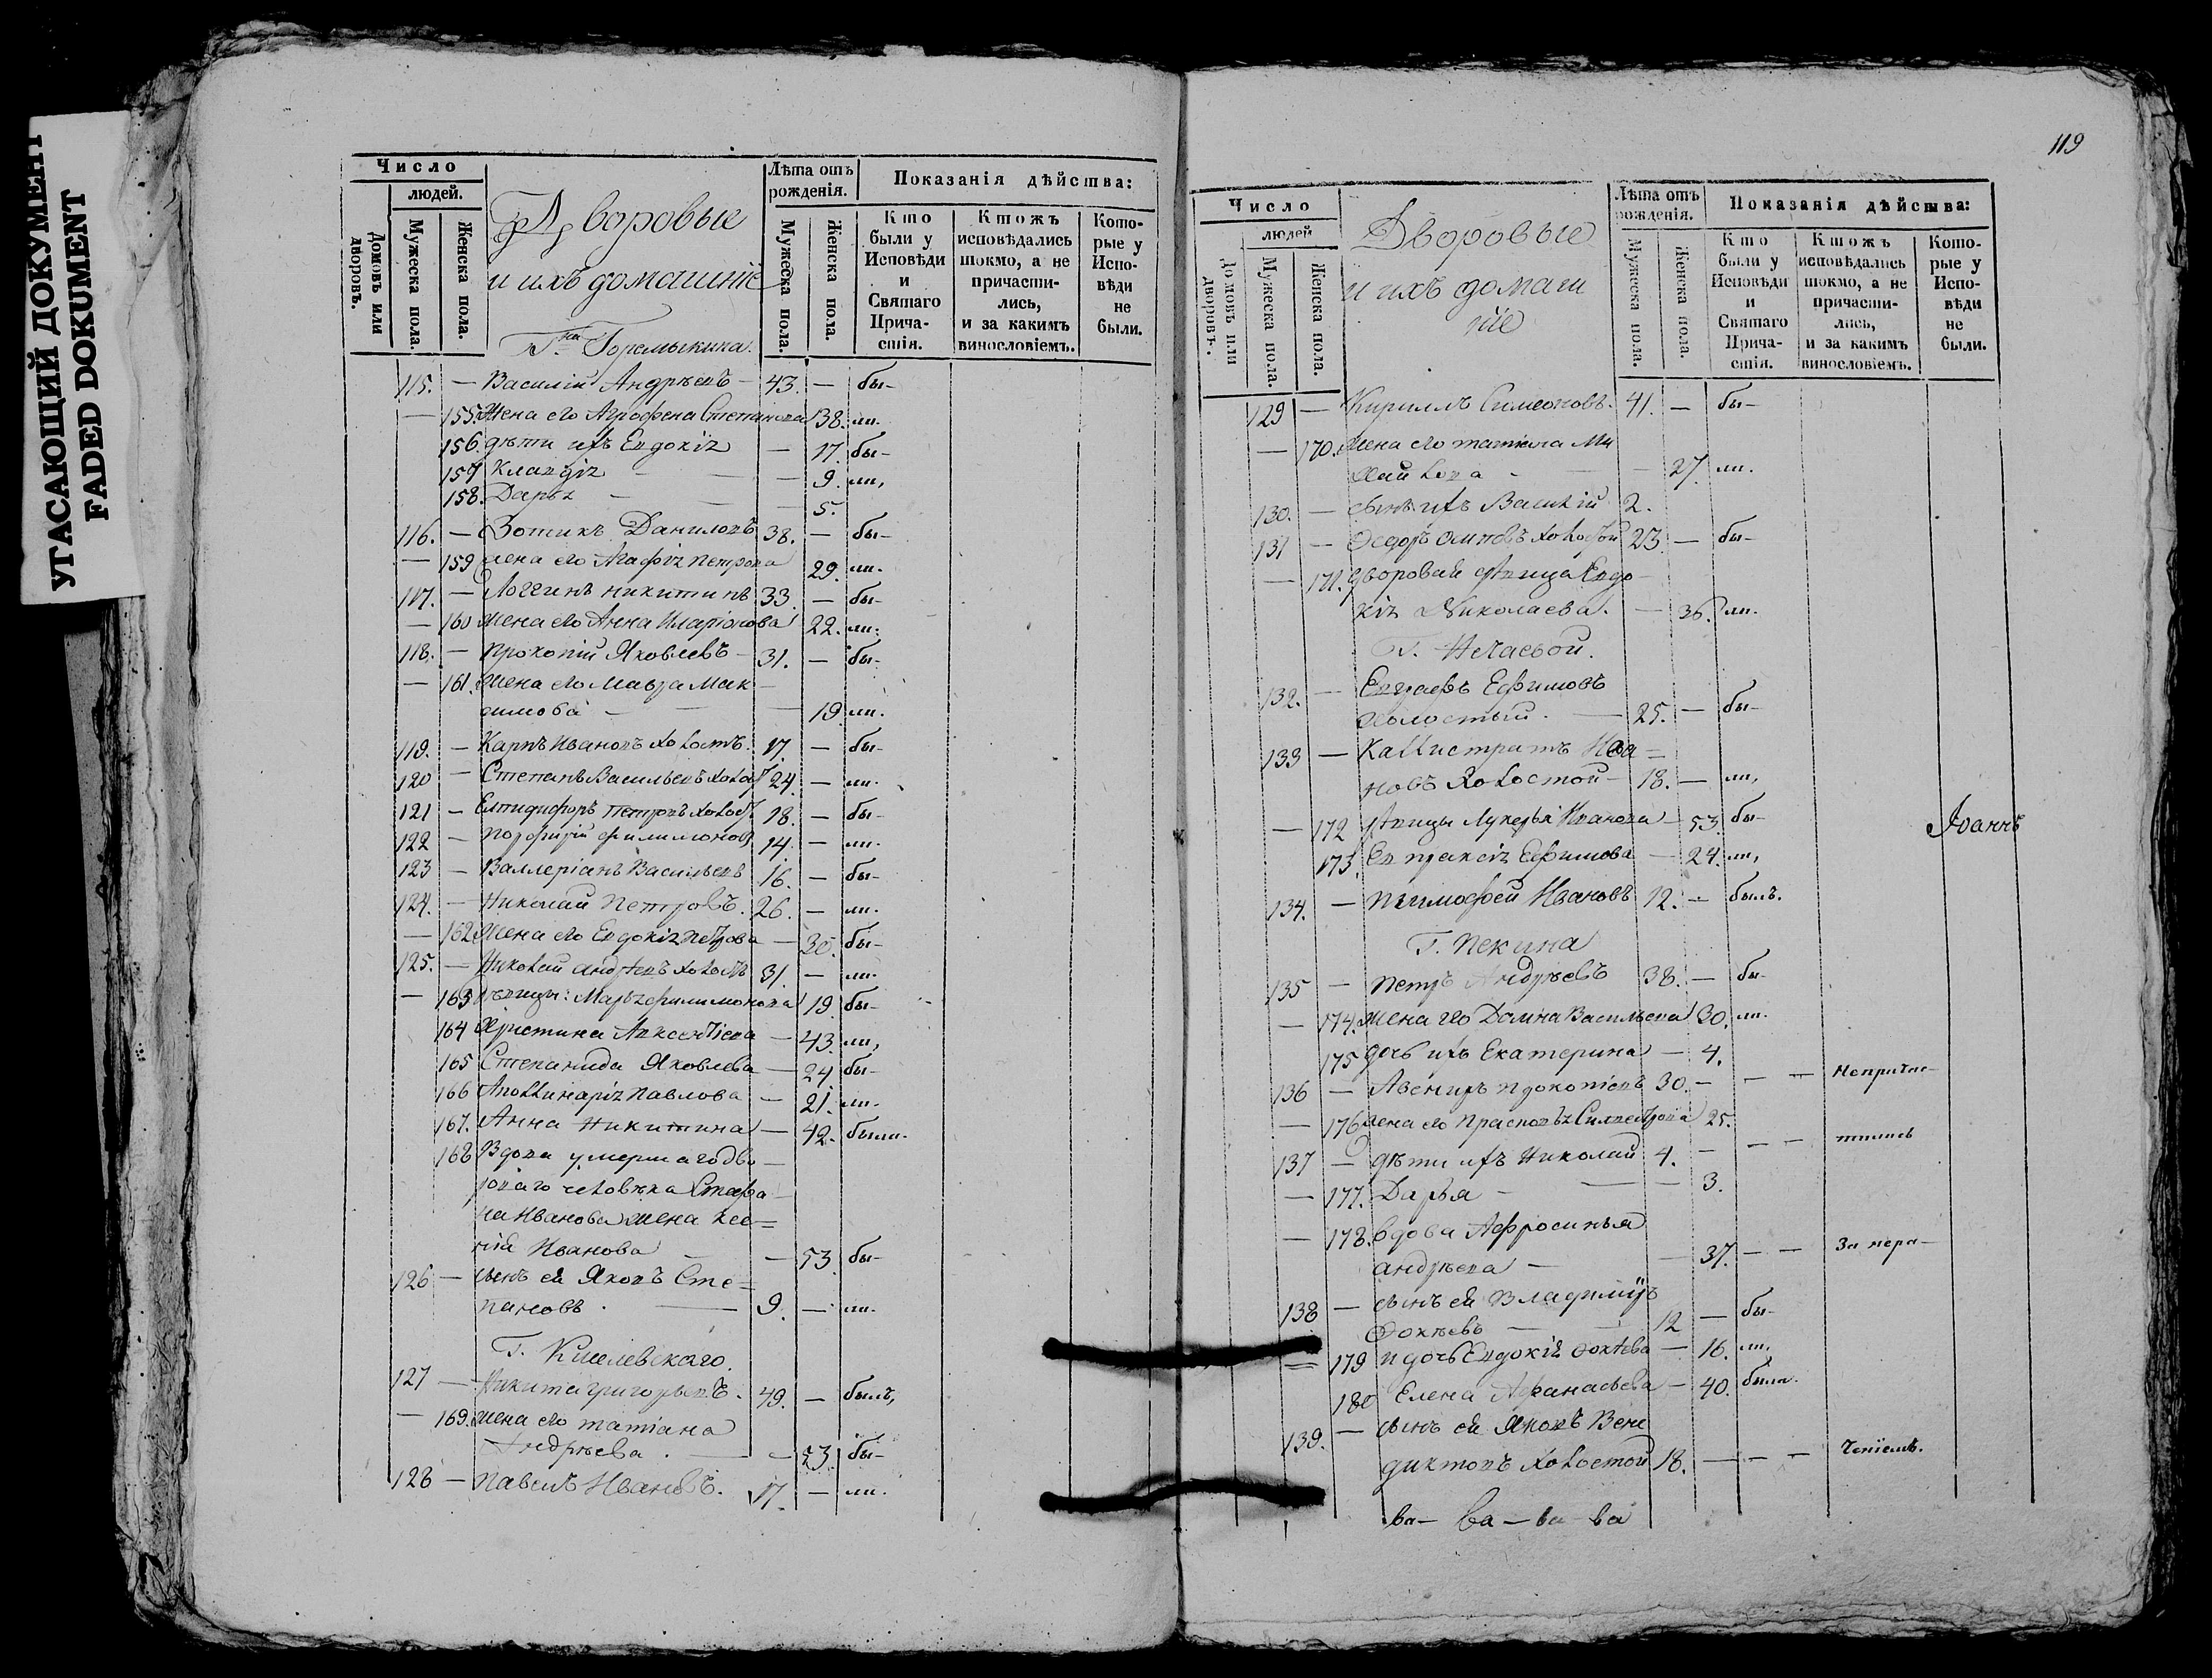 УГАСАЮЩИЙ ДОКУМЕНТ
FADED DOKUMENT
Число
людей.
Домовъ или дворовъ.
Мужеска пола.
Женска пола.
Дворовые
и ихъ домашніе
Г-на Горемыкина.
Лѣта отъ рожденія.
Мужеска пола.
Женска пола.
Показанія дѣйства:
Кто были у Исповѣди и Святаго Причастія.
Ктожъ исповѣдались токмо, а не причастились, и за какимъ винословіемъ.
Которые у Исповѣди не были.
115. — Василій Андрѣевъ — 43. — бы-
— 155. Жена его Агрофена Степанова 38. ли.
156. дѣти ихъ Евдокія — 17. бы-
157 Клавдія — — 9. ли,
158. Дарья — — 5.
116. — Зотикъ Даниловъ 38. — бы-
— 159 жена его Агафія Петрова 29. ли.
117. — Логгинъ Никитинъ 33. — бы-
— 160 жена его Анна Иларіонова 22. ли.
118. — Прокопій Яковлевъ — 31. — бы-
— 161. жена его Мавра Мак-
симова — — 19 ли.
119. — Карпъ Ивановъ холостъ. 17. — бы-
120 — Степанъ Васильевъ холос 24. — ли.
121 — Елпидифоръ Петровъ холос. 18. — бы-
122 — Порфирій Филимоновъ 14. — ли.
123 — Валлеріанъ Васильевъ 16. — бы-
124. — Николай Петровъ. 26. — ли.
— 162 Жена его Евдокія Петрова — 30. бы-
125. — Николай Андреевъ холостъ 31. — ли.
— 163 Дѣвицы: Марья Филимонова 19. бы-
164 Христина Авксентіева — 43. ли,
165 Степанида Яковлева — 24 бы-
166 Аполлинарія Павлова — 21. ли.
167. Анна Никитина — 42. были.
168 Вдова умершаго дво-
роваго человѣка Стефа-
на Иванова жена Ксе=
нія Иванова — — 53. бы-
126 — сынъ ея Яковъ Сте=
пановъ. — 9. — ли.
Г. Киселевскаго.
127 — Никита Григорьевъ. 49. — былъ,
— 169. жена его Татіана
Андрѣева. — — 23. бы-
128 — Павелъ Ивановъ. 17. — ли.
119
Число
людей
Домовъ или дворовъ.
Мужеска пола.
Женска пола.
Дворовые
и ихъ домаш
ніе
Лѣта отъ рожденія.
Мужеска пола.
Женска пола.
Показанія дѣйства:
Кто были у Исповѣди и Святаго Причастія.
Ктожъ исповѣдались токмо, а не причастились, и за какимъ винословіемъ.
Которые у Исповѣди не были.
129 — Кириллъ Симеоновъ. 41. — бы-
— 170. жена его Татіана Ми
хайлова — — 27. ли.
130. — сынъ ихъ Василій 2.
131 — Ѳедоръ Осиповъ холостой 23 — бы-
— 171. дворовая дѣвица Евдо-
кія Николаева. — 36. ли.
Г. Нечаевой.
132. — Евграфъ Ефимовъ
холостый. — 25. — бы-
133 — Каллистратъ Ива=
новъ холостой — 18. — ли,
— 172 дѣвицы Лукерья Иванова — 53. бы-
Іоаннъ
173. Евпраксія Ефимова — 24. ли,
134. — Тимофей Ивановъ 12. — былъ.
Г. Пекина
135 — Петръ Андрѣевъ 38. — бы-
— 174. жена его Домна Васильева 30. ли.
175 дочь ихъ Екатерина — 4.
136 — Авениръ Прокопіевъ 30. — — — Непричас-
— 176 жена его Прасковья Силвестрова 25.
137 — дѣти ихъ Николай 4. — — — тились
— 177. Дарья — — — 3.
— 178. вдова Афросинья
Андрѣева — — 37. — — За нера-
138 — сынъ ея Владиміръ
Фокѣевъ — — 12 — бы-
= 179 и дочь Евдокія Фокѣева — 16. ли,
180 Елена Афанасьева — 40. была.
139. — сынъ ея Яковъ Вене
диктовъ холостой 18. — — — ченіемъ.
ва— ва — ва ва